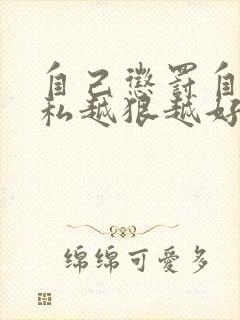 自己懲罰自
私越狠越好
绵绵可愛多